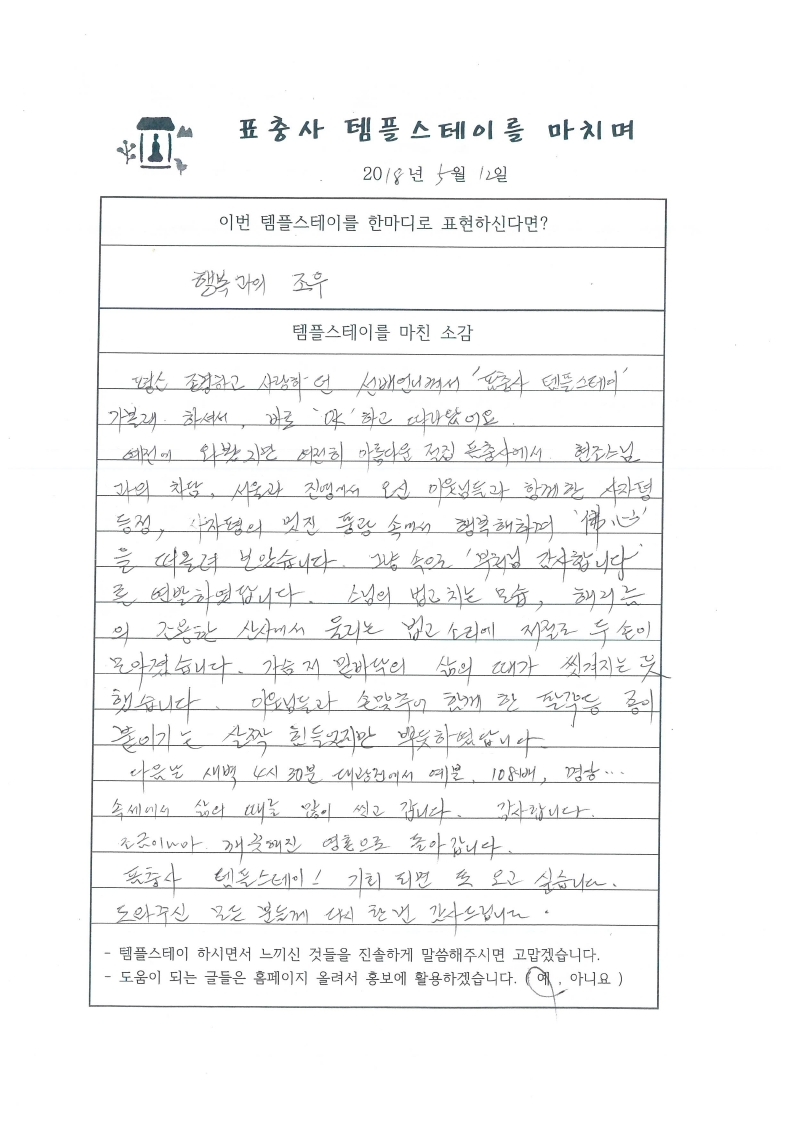 표충사 템플스테이를 마치며
2018년 5월 12일
이번 템플스테이를 한마디로 표현하신다면?
행복과의 조우
템플스테이를 마친 소감
평소 존경하고 사랑하던 선배언니께서 '표충사 템플스테이'
가볼래 하셔서, 바로 'OK'하고 따라왔어요.
예전에 와봤지만 여전히 아름다운 적집 표충사에서 현조스님
과의 차담, 서울과 진영에서 오신 이웃님들과 함께한 사자평
등정, 사자평의 멋진 풍광 속에서 행복해하며 '佛心'
을 떠올려 보았습니다. 그냥 속으로 '부처님 감사합니다'
를 연발하였답니다. 스님의 법고치는 모습, 해질녘
의 조용한 산사에서 울리는 법고 소리에 저절로 두 손이
모아졌습니다. 가슴 저 밑바닥의 삶의 때가 씻겨지는 듯
했습니다. 이웃님들과 손맞추어 함께 한 팔각등 종이
붙이기는 살짝 힘들었지만 뿌듯하였답니다.
다음날 새벽 4시 30분 대광전에서 예불, 108배, 명상…
속세에서 삶의 때를 많이 씻고 갑니다. 감사합니다.
조금이나마 깨끗해진 영혼으로 돌아갑니다.
표충사 템플스테이! 기회 되면 또 오고 싶습니다.
도와주신 모든 분들께 다시 한번 감사드립니다.
- 템플스테이 하시면서 느끼신 것들을 진솔하게 말씀해주시면 고맙겠습니다.
- 도움이 되는 글들은 홈페이지 올려서 홍보에 활용하겠습니다. ( 예 , 아니요 )